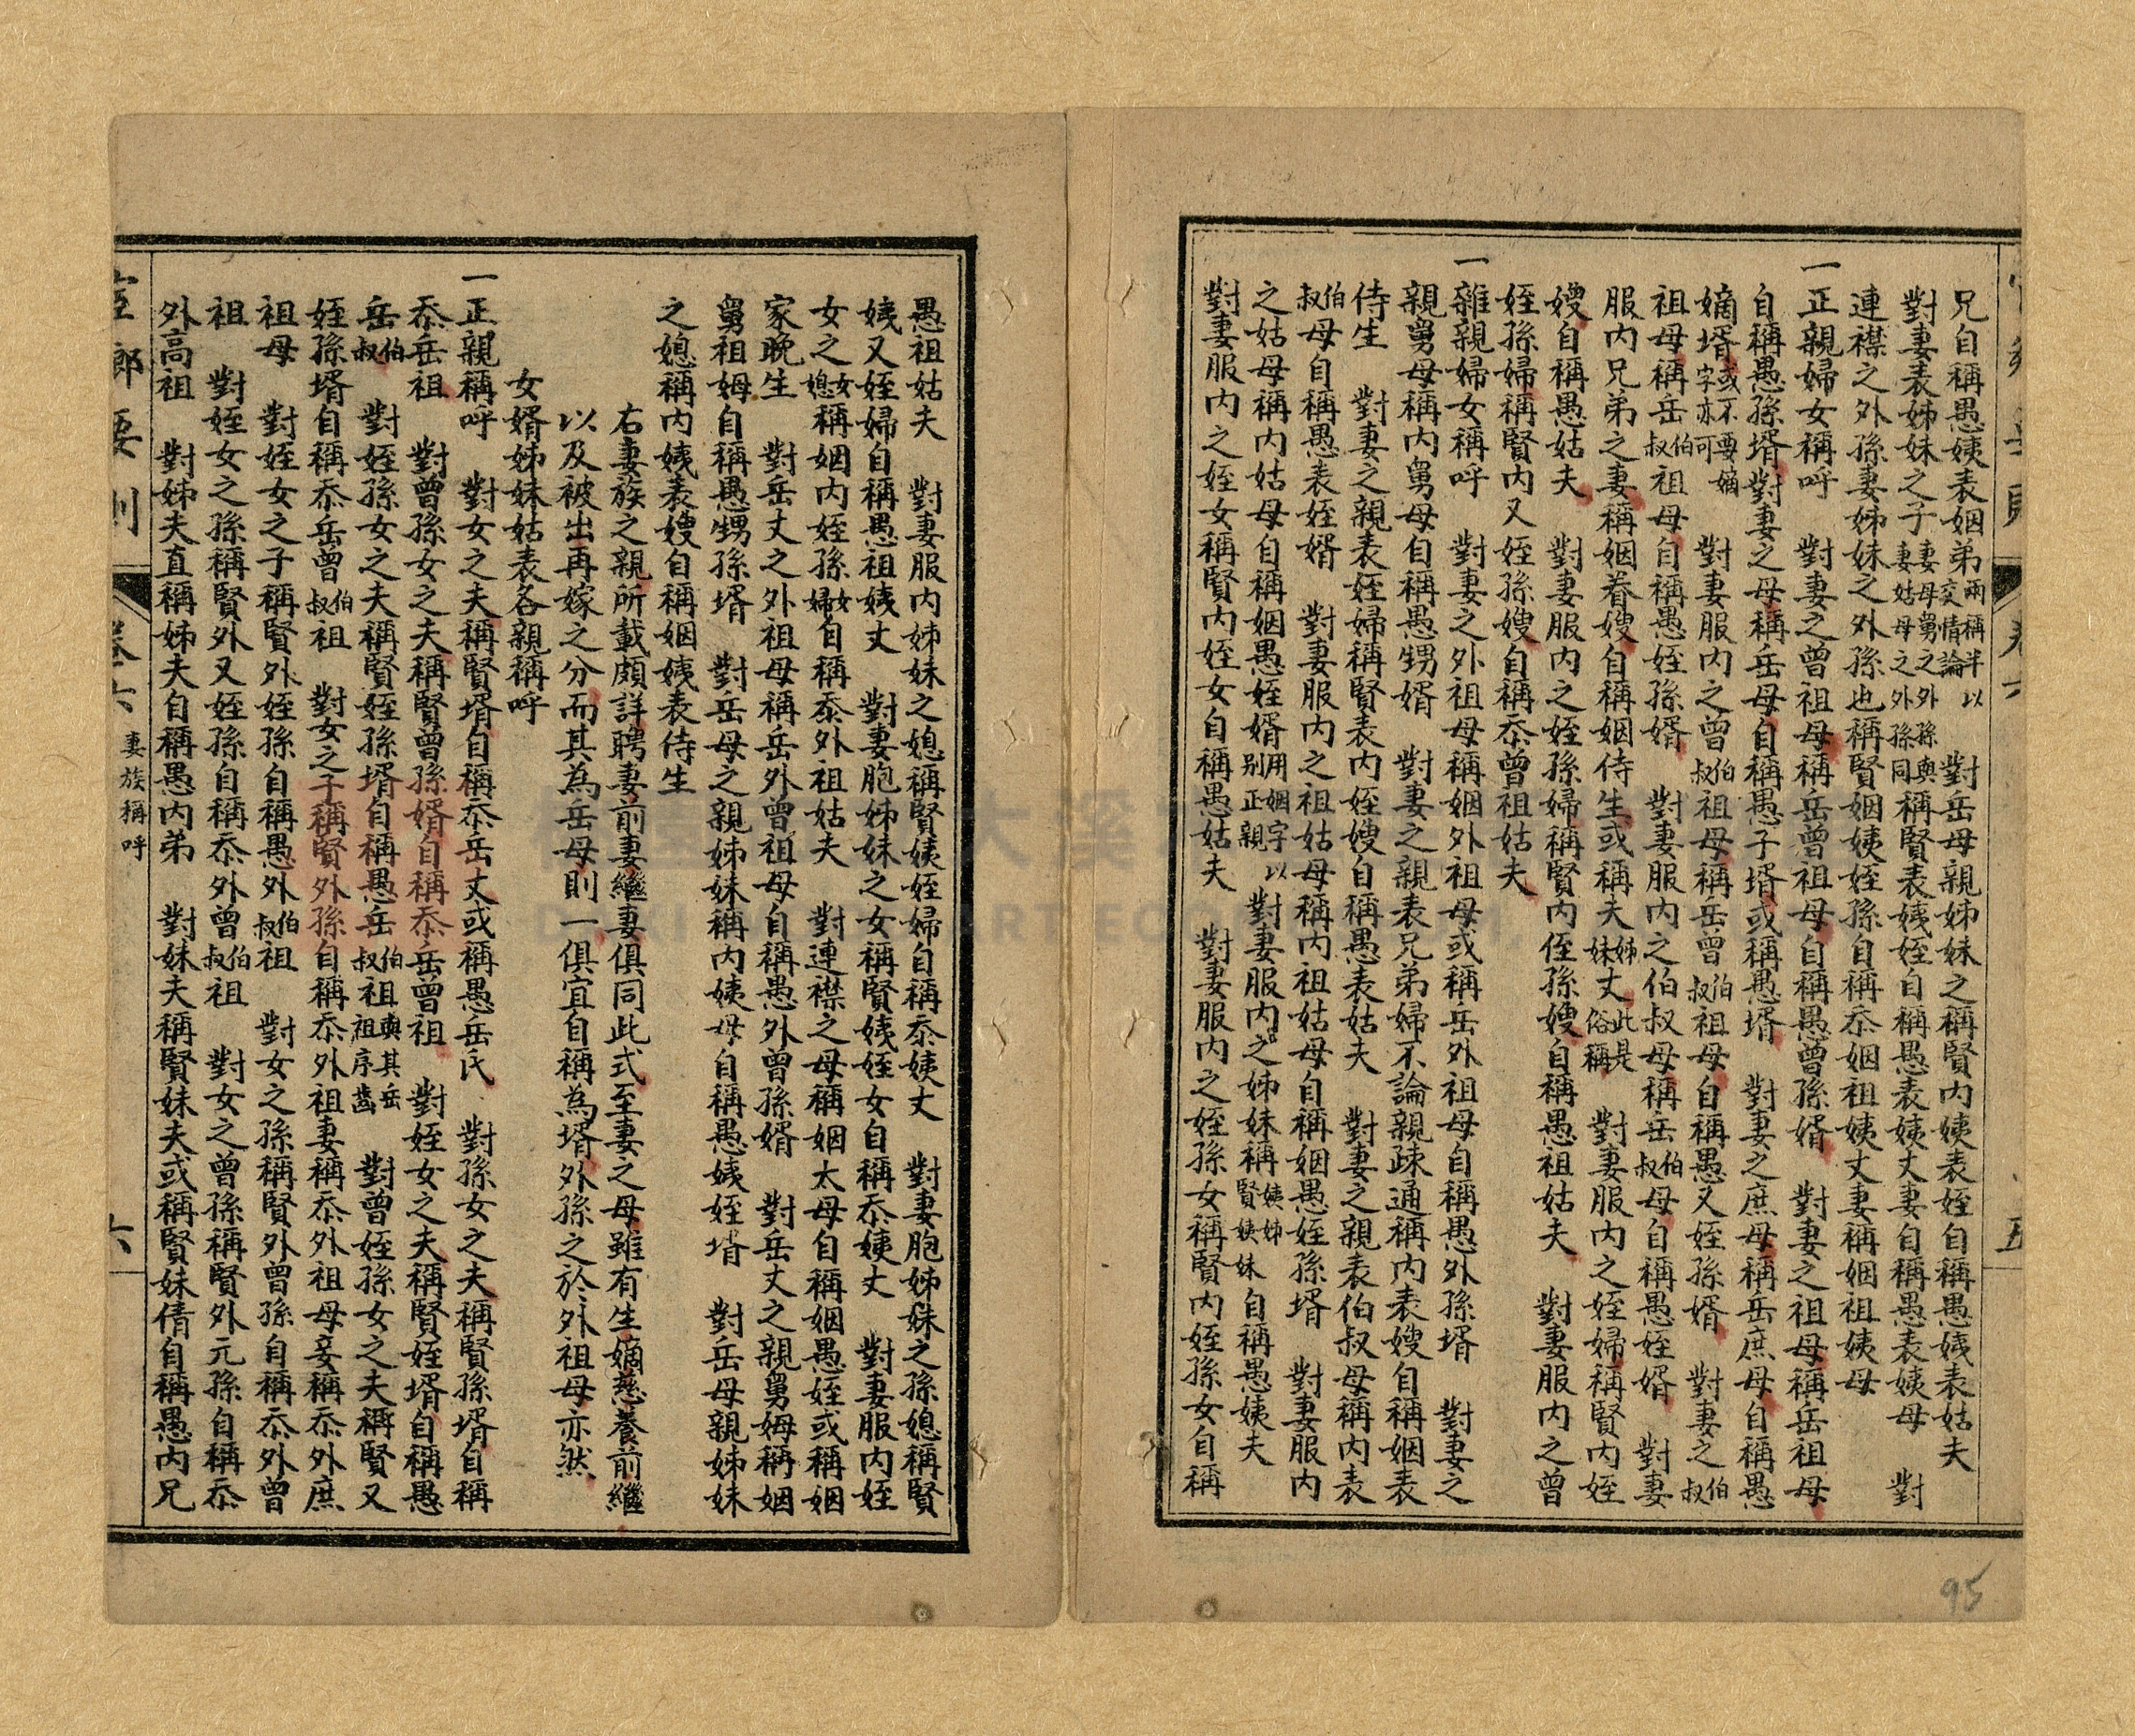 兄自稱愚姨表姻弟兩稱半以交情論　對岳母親姊妹之稱賢內姨表姪自稱愚姨表姑夫
對妻表姊妹之子妻母舅之外孫與妻姑母之外孫同稱賢表姨姪自稱愚表姨丈妻自稱愚表姨母　對
連襟之外孫妻姊妹之外孫也稱賢姻姨姪孫自稱忝姻祖姨丈妻稱姻祖姨母
一正親婦女稱呼　對妻之曾祖母稱岳曾祖母自稱愚曾孫婿　對妻之祖母稱岳祖母
自稱愚孫壻對妻之母稱岳母自稱愚子壻或稱愚壻　對妻之庶母稱岳庶母自稱愚
嫡壻或不要嫡字亦可　對妻服內之曾伯叔祖母稱岳曾伯叔祖母自稱愚又姪孫婿　對妻之伯叔
祖母稱岳伯叔祖母自稱愚姪孫婿　對妻服內之伯叔母稱岳伯叔母自稱愚姪婿　對妻
服內兄弟之妻稱姻眷嫂自稱姻侍生或稱夫姊妹丈此是俗稱　對妻服內之姪婦稱賢內姪
嫂自稱愚姑夫　對妻服內之姪孫婦稱賢內侄孫嫂自稱愚祖姑夫　對妻服內之曾
姪孫婦稱賢內又姪孫嫂自稱忝曾祖姑夫
一雜親婦女稱呼　對妻之外祖母稱姻外祖母或稱岳外祖母自稱愚外孫壻　對妻之
親舅母稱內舅母自稱愚甥婿　對妻之親表兄弟婦不論親疎通稱內表嫂自稱姻表
侍生　對妻之親表姪婦稱賢表內姪嫂自稱愚表姑夫　對妻之親表伯叔母稱內表
伯叔母自稱愚表姪婿　對妻服內之祖姑母稱內祖姑母自稱姻愚姪孫壻　對妻服內
之姑母稱內姑母自稱姻愚姪婿用姻字以別正親　對妻服內之姊妹稱姨姊賢姨妹自稱愚姨夫
對妻服內之姪女稱賢內姪女自稱愚姑夫　對妻服內之姪孫女稱賢內姪孫女自稱
五
95
愚祖姑夫　對妻服內姊妹之媳稱賢姨姪婦自稱忝姨丈　對妻胞姊妹之孫媳稱賢
姨又姪婦自稱愚祖姨丈　對妻胞姊妹之女稱賢姨姪女自稱忝姨丈　對妻服內姪
女之女媳稱姻內姪孫女婦自稱忝外祖姑夫　對連襟之母稱姻太母自稱姻愚姪或稱姻
家晚生　對岳丈之外祖母稱岳外曾祖母自稱愚外曾孫婿　對岳丈之親舅姆稱姻
舅祖姆自稱愚甥孫壻　對岳母之親姊妹稱內姨母自稱愚姨姪壻　對岳母親姊妹
之媳稱內姨表嫂自稱姻姨表侍生
右妻族之親所載頗詳聘妻前妻繼妻俱同此式至妻之母雖有生嫡慈養前繼
以及被出再嫁之分而其為岳母則一俱宜自稱為壻外孫之於外祖母亦然
女婿姊妹姑表各親稱呼
一正親稱呼　對女之夫稱賢壻自稱忝岳丈或稱愚岳氏　對孫女之夫稱賢孫壻自稱
忝岳祖　對曾孫女之夫稱賢曾孫婿自稱忝岳曾祖　對姪女之夫稱賢姪壻自稱愚
岳伯叔　對姪孫女之夫稱賢姪孫壻自稱愚岳伯叔祖與其岳祖序齒　對曾姪孫女之夫稱賢又
姪孫壻自稱忝岳曾伯叔祖　對女之子稱賢外孫自稱忝外祖妻稱忝外祖母妾稱忝外庶
祖母　對姪女之子稱賢外姪孫自稱愚外伯叔祖　對女之孫稱賢外曾孫自稱忝外曾
祖　對姪女之孫稱賢外又姪孫自稱忝外曾伯叔祖　對女之曾孫稱賢外元孫自稱忝
外高祖　對姊夫直稱姊夫自稱愚內弟　對妹夫稱賢妹夫或稱賢妹倩自稱愚內兄
卷六　妻族稱呼　六